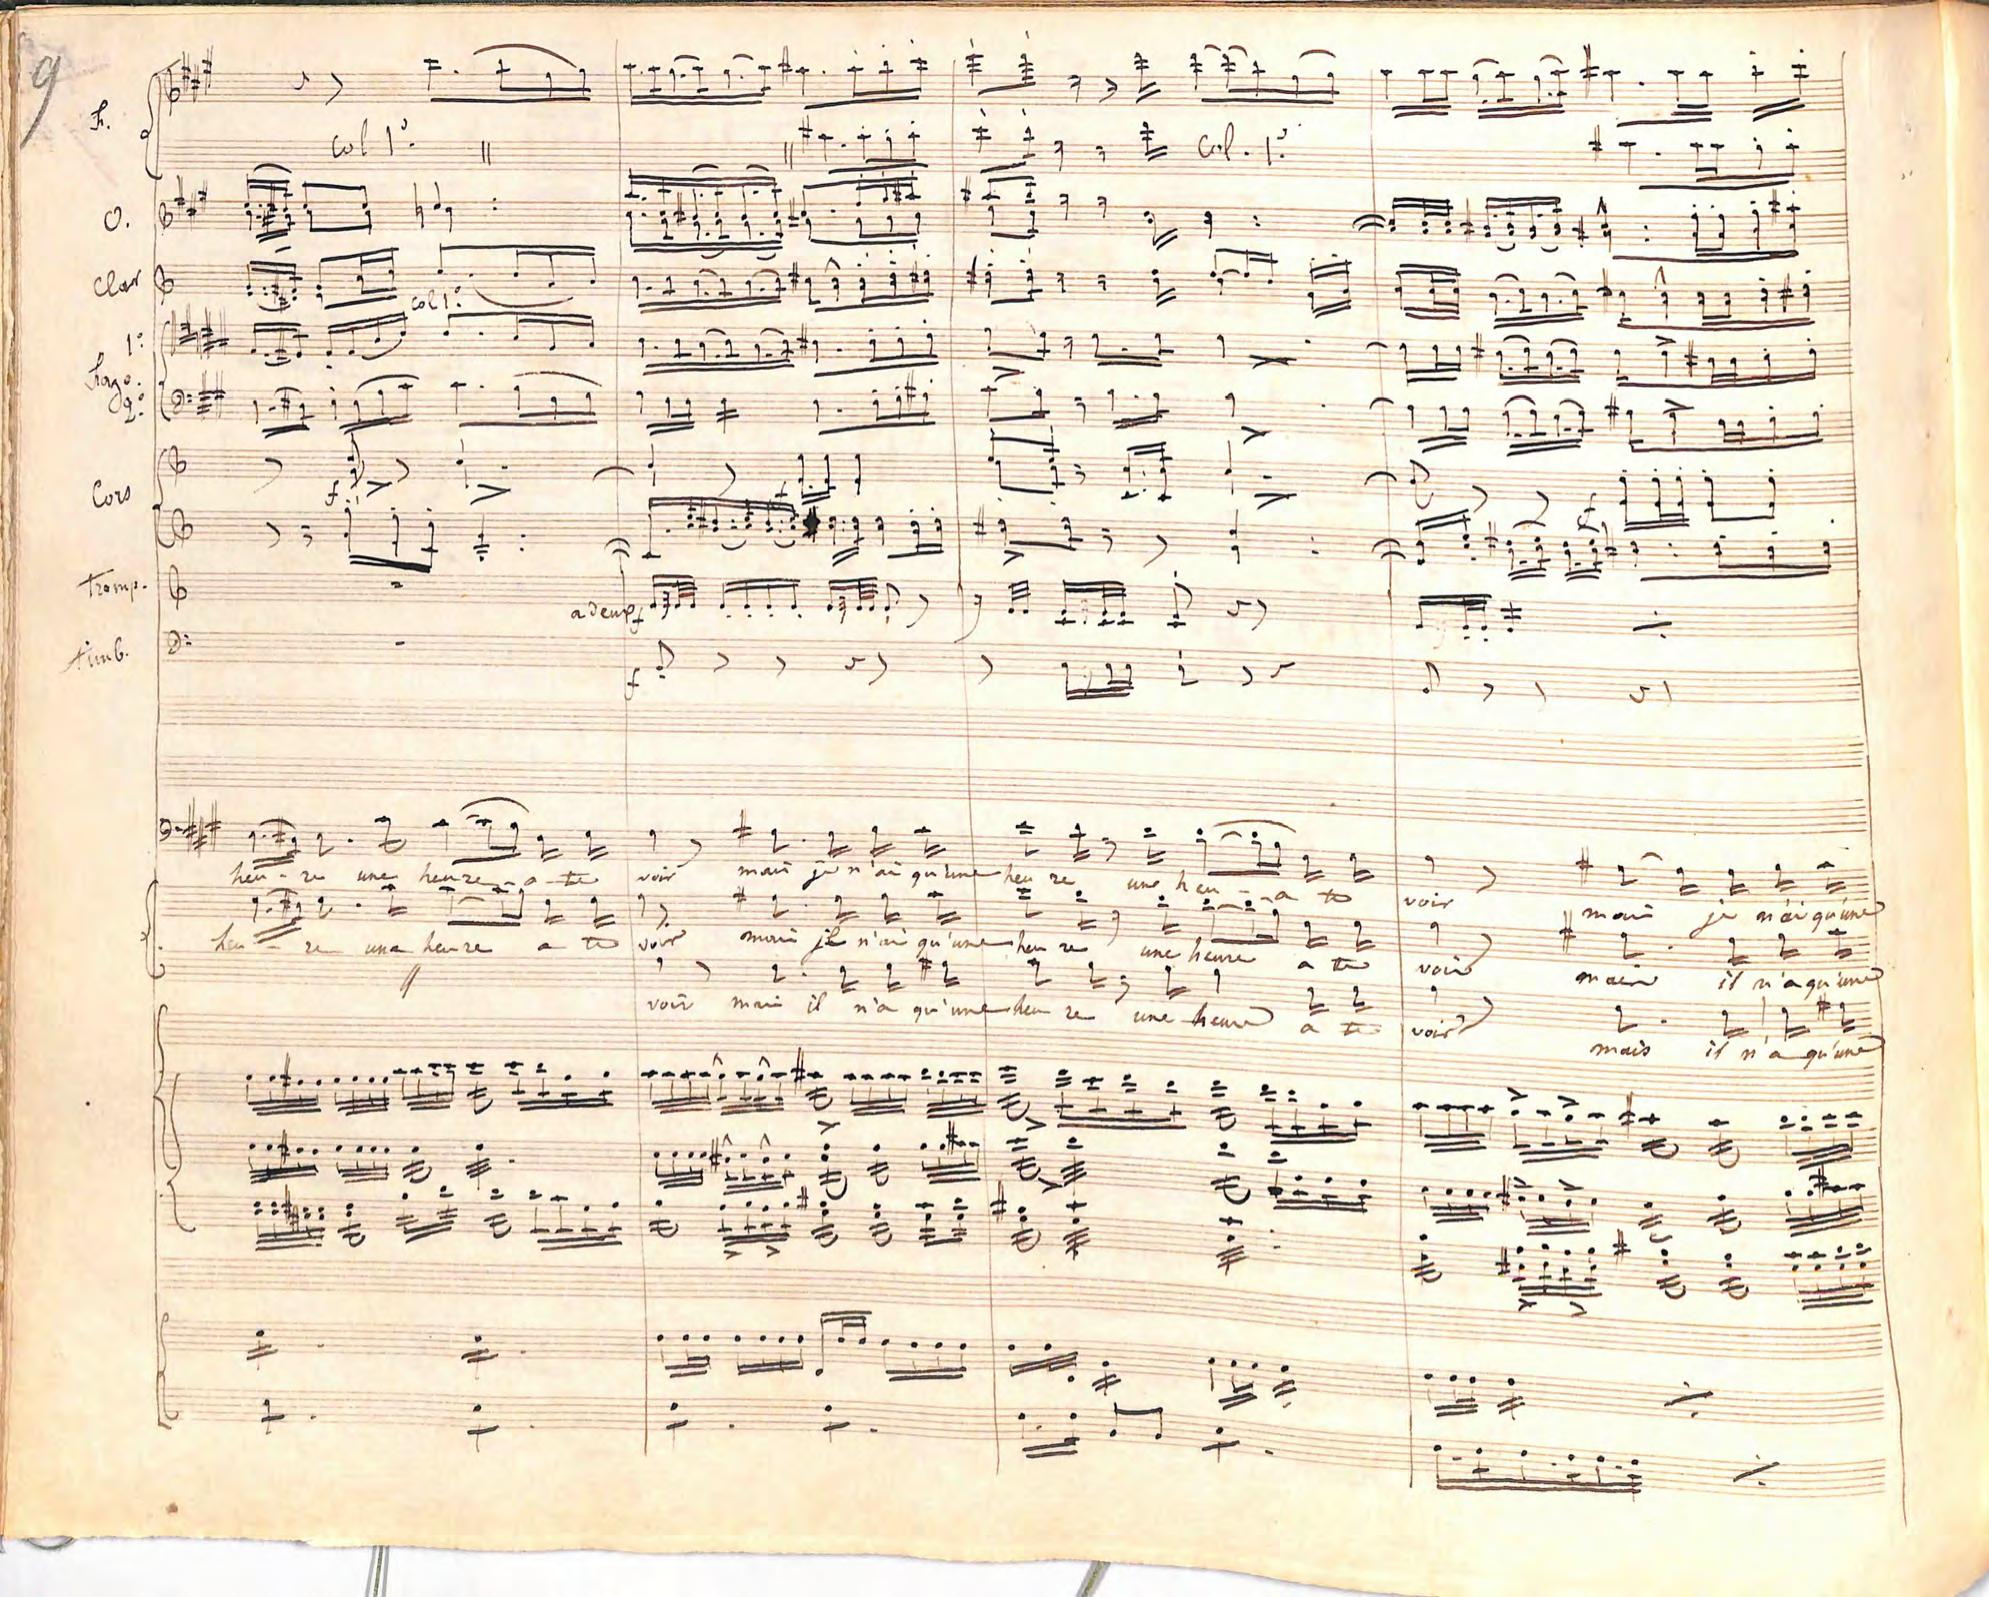 9
F.
Col 1º.
Col. 1º.
O.
Clar
col 1º.
1º.
Fago.
2º.
Cors
f
f
f
Tromp.
a deux f
Timb.
f
heu - re une heure - a te voir mais je n'ai qu'une heu re une heu - a te voir mais je n'ai qu'une
heu - re une heure a te voir mais il n'ai qu'une heu re une heure a te voir mais il n'a qu'une
voir mais il n'a qu'une heu re une heure a te voir mais il n'a qu'une